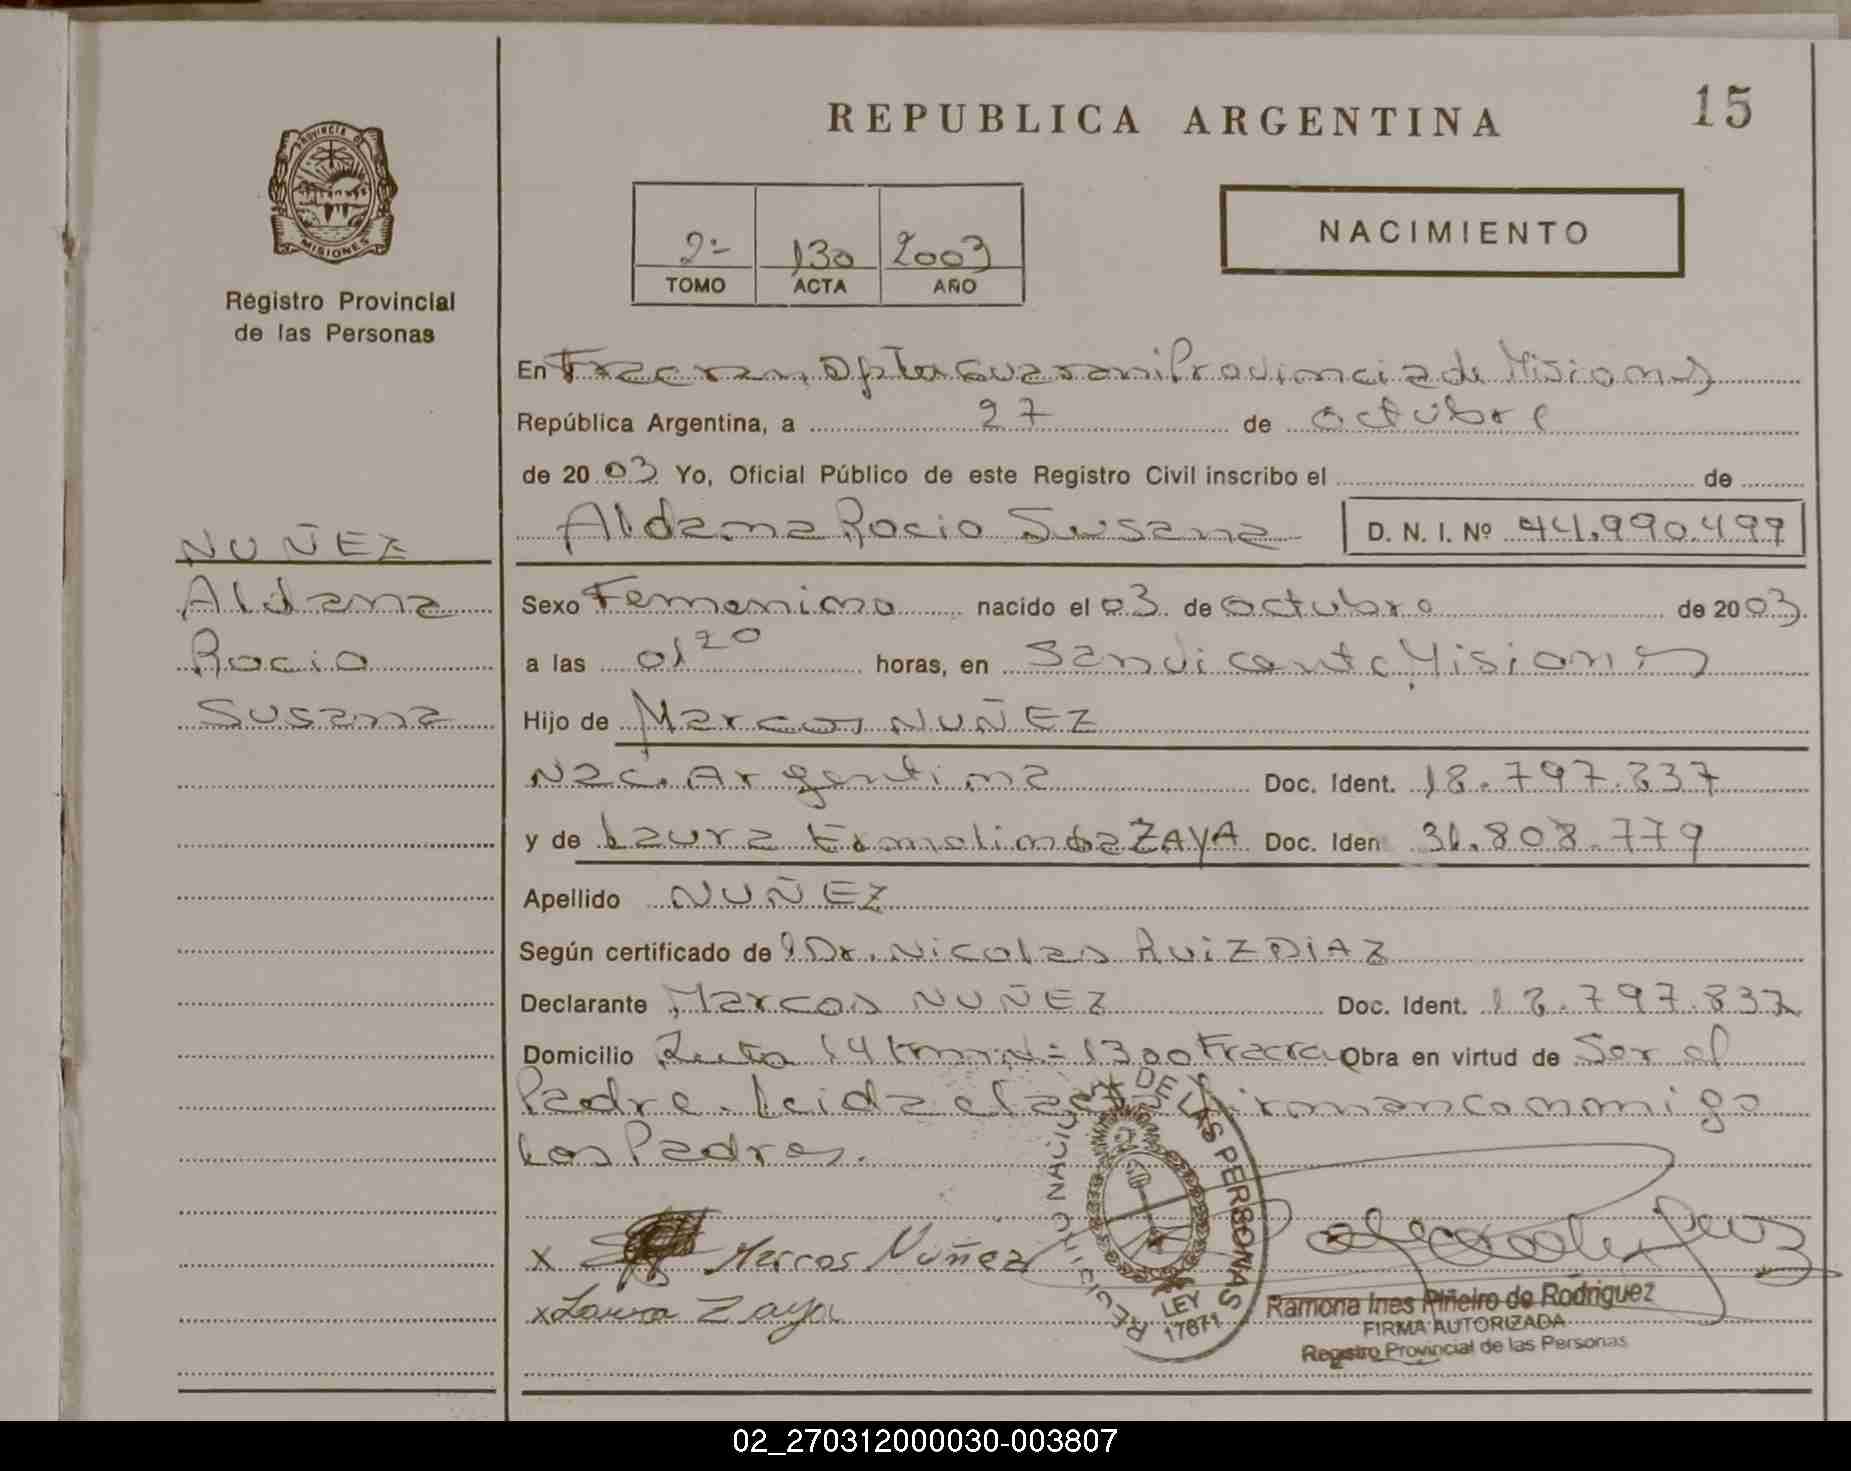 REPUBLICA ARGENTINA
15
PROVINCIA DE
MISIONES
Registro Provincial
de las Personas
2º 130 2003
TOMO ACTA AÑO
NACIMIENTO
En Fracran, Dpto Guarani Provincia de Misiones
República Argentina, a 27 de octubre
de 2003 Yo, Oficial Público de este Registro Civil inscribo el de
Aldana Rocio Susana D. N. I. Nº 44.990.499
NUÑEZ
Aldana
Rocio
Susana
Sexo Femenino nacido el 03 de octubre de 2003.
a las 01 20 horas, en San Vicente Misiones
Hijo de Marcos NUÑEZ
Nac. Argentina Doc. Ident. 18.797.837
y de Laura Ermelinda ZAYA Doc. Iden 31.808.779
Apellido NUÑEZ
Según certificado de l Dr. Nicolas RUIZ DIAZ
Declarante Marcos NUÑEZ Doc. Ident. 18.797.837
Domicilio Ruta 14 Km Nº 1300 Fracran Obra en virtud de Ser el
Padre. Leida el acta firman conmigo
Los Padres.
x Marcos Nuñez
x Laura Zaya
REGISTRO NACIONAL DE LAS PERSONAS
LEY
17671
Ramona Ines Piñeiro de Rodriguez
FIRMA AUTORIZADA
Registro Provincial de las Personas
02_270312000030-003807